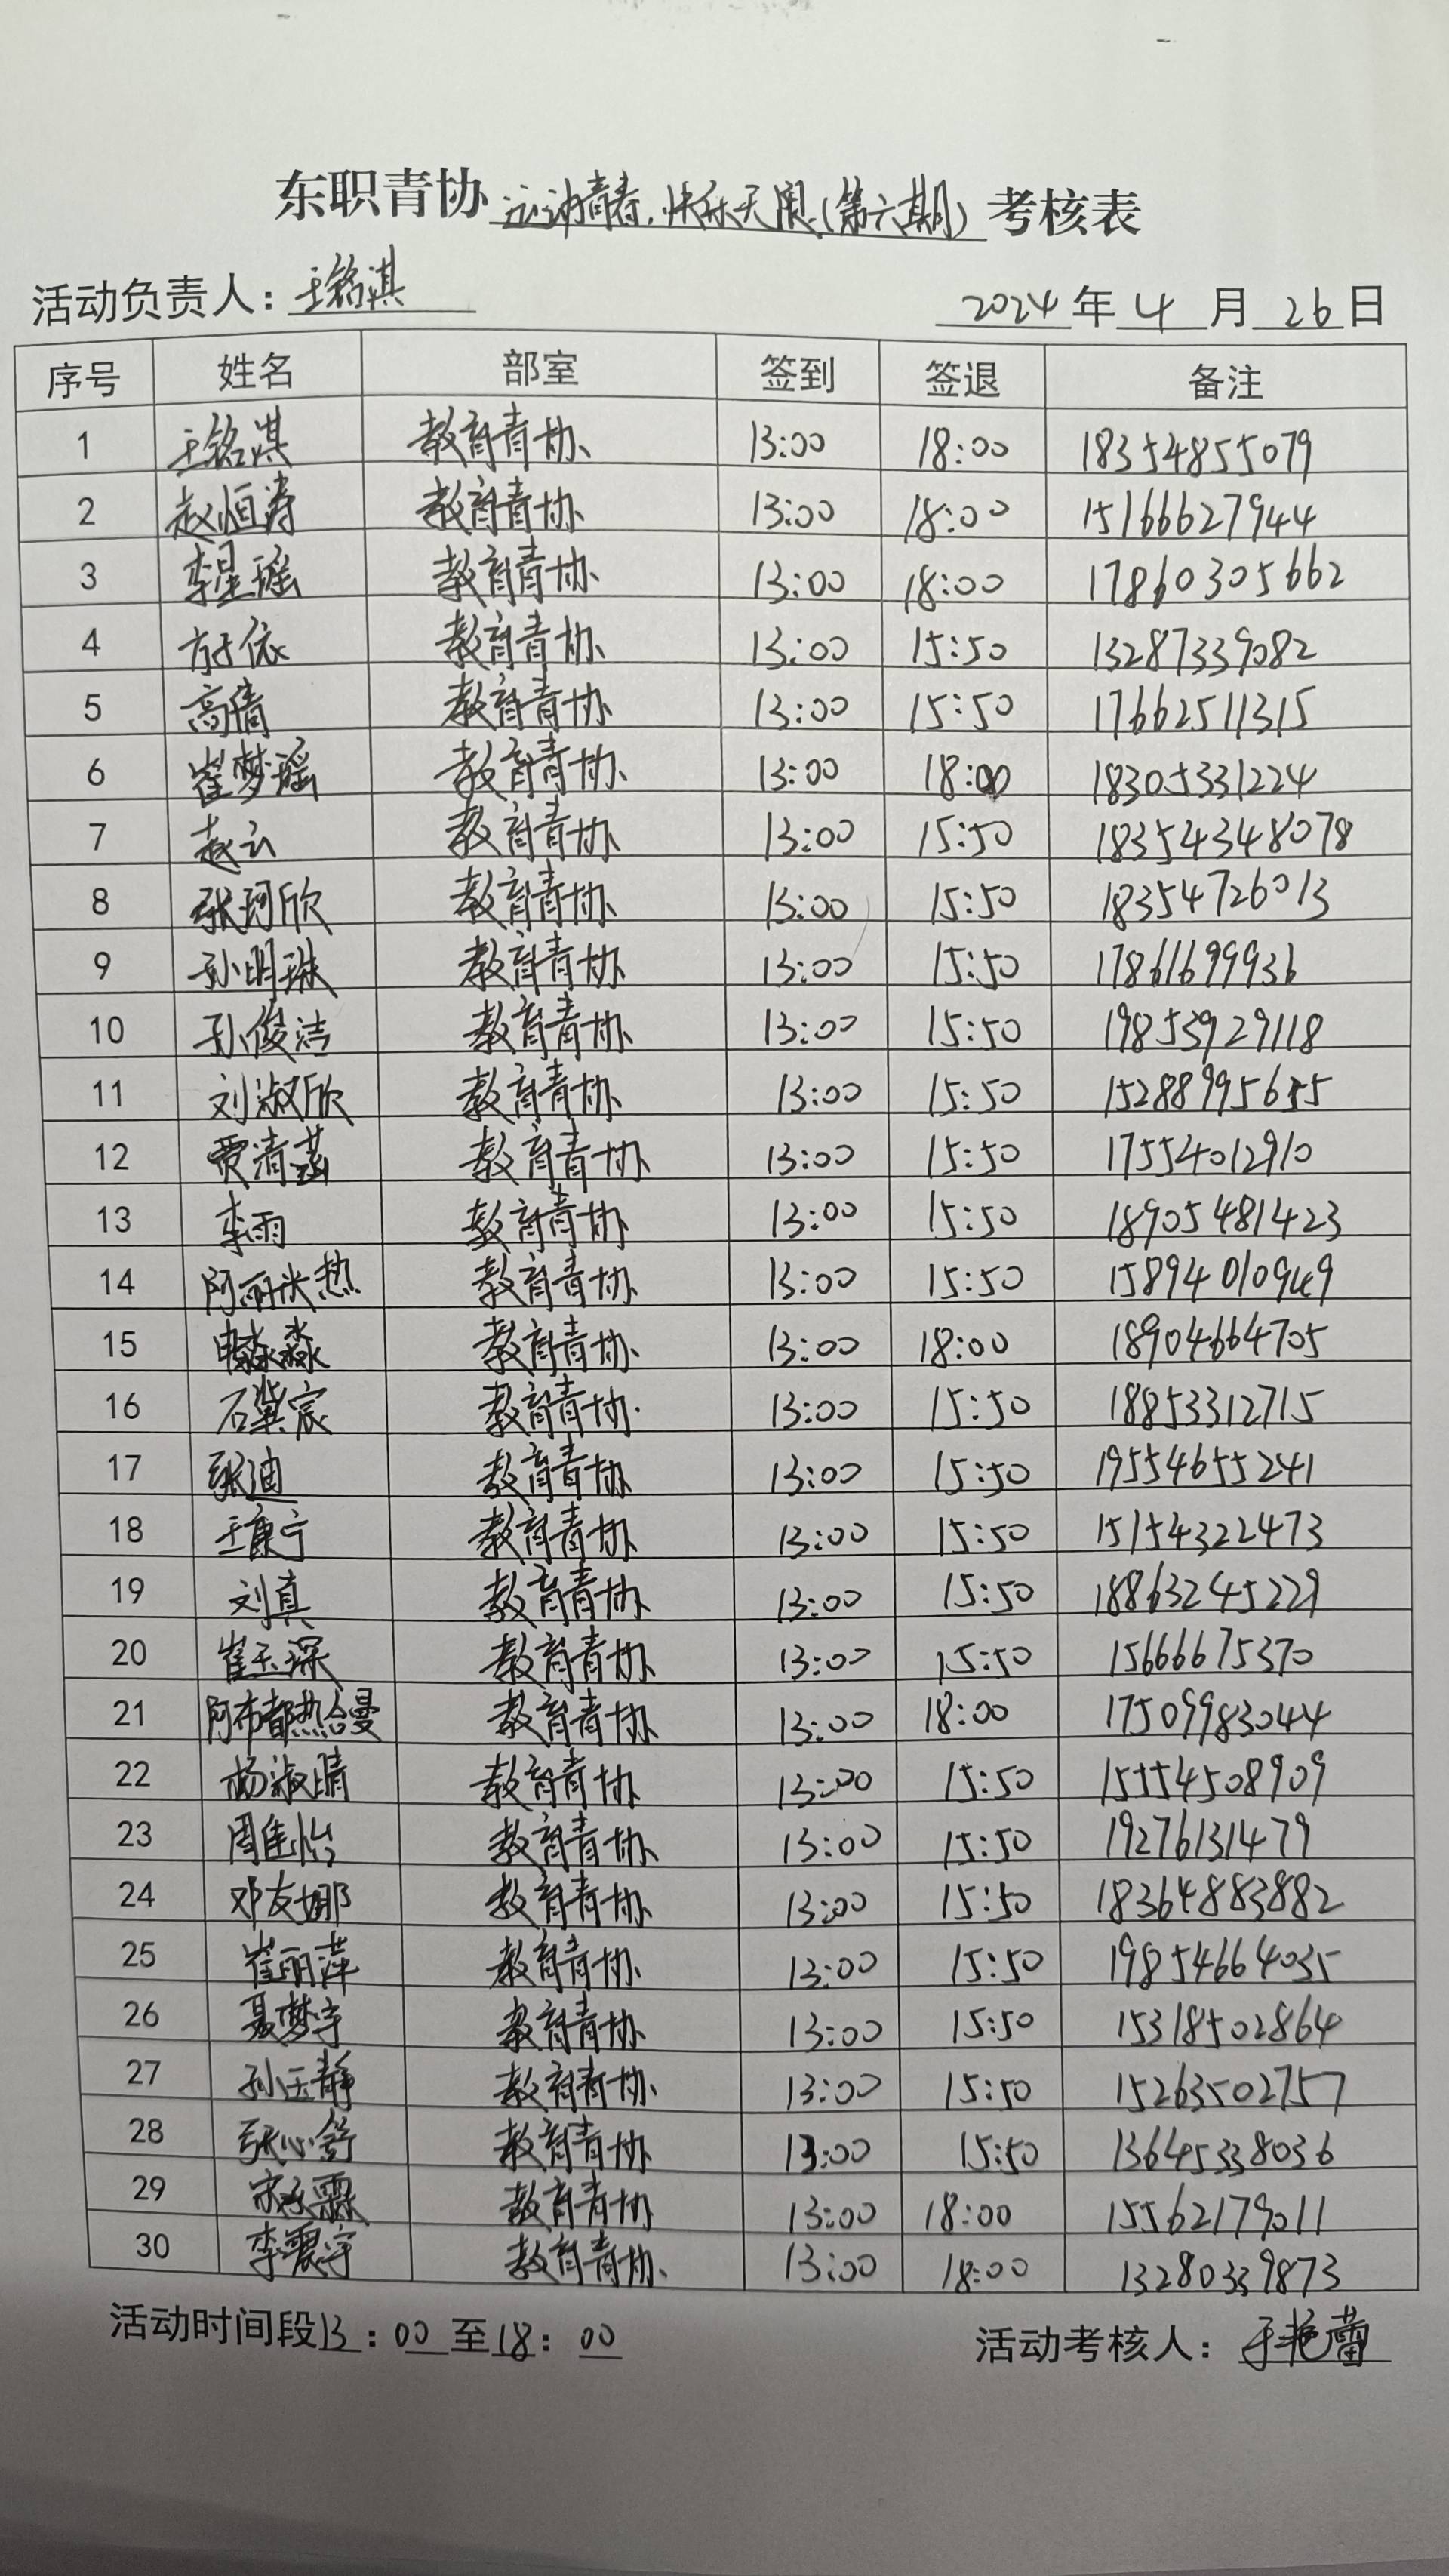 东职青协 运动青春,快乐无限(第六期) 考核表
活动负责人: 王铭淇 2024 年 4 月 26 日
序号 姓名 部室 签到 签退 备注
1 王铭淇 教育青协 13:00 18:00 18354855079
2 赵恒涛 教育青协 13:00 18:00 15166627944
3 李星瑶 教育青协 13:00 18:00 17860305662
4 方子依 教育青协 13:00 15:50 13287339082
5 高倩 教育青协 13:00 15:50 17662511315
6 崔梦瑶 教育青协 13:00 18:00 18305331224
7 赵云 教育青协 13:00 15:50 18354348078
8 张珂欣 教育青协 13:00 15:50 18354726013
9 孙明琳 教育青协 13:00 15:50 17861699936
10 孙俊洁 教育青协 13:00 15:50 19853929118
11 刘淑欣 教育青协 13:00 15:50 15288995655
12 贾清菡 教育青协 13:00 15:50 17554012910
13 李雨 教育青协 13:00 15:50 18905481423
14 阿丽米热 教育青协 13:00 15:50 15894010949
15 申淼淼 教育青协 13:00 18:00 18904664705
16 石冀宸 教育青协 13:00 15:50 18853312715
17 张迪 教育青协 13:00 15:50 19554655241
18 王康宁 教育青协 13:00 15:50 15154322473
19 刘真 教育青协 13:00 15:50 18863245229
20 崔玉琛 教育青协 13:00 15:50 15666675370
21 阿布都热合曼 教育青协 13:00 18:00 17509983044
22 杨淑晴 教育青协 13:00 15:50 15554508909
23 周佳怡 教育青协 13:00 15:50 19276131479
24 邓友娜 教育青协 13:00 15:50 18364883882
25 崔丽萍 教育青协 13:00 15:50 19854664035
26 聂梦宇 教育青协 13:00 15:50 15318502864
27 孙玉静 教育青协 13:00 15:50 15263502757
28 张心舒 教育青协 13:00 15:50 13645338036
29 宋霖 教育青协 13:00 18:00 15562179011
30 李震宇 教育青协 13:00 18:00 13280339873
活动时间段13:00至18:00 活动考核人: 于艳蕾